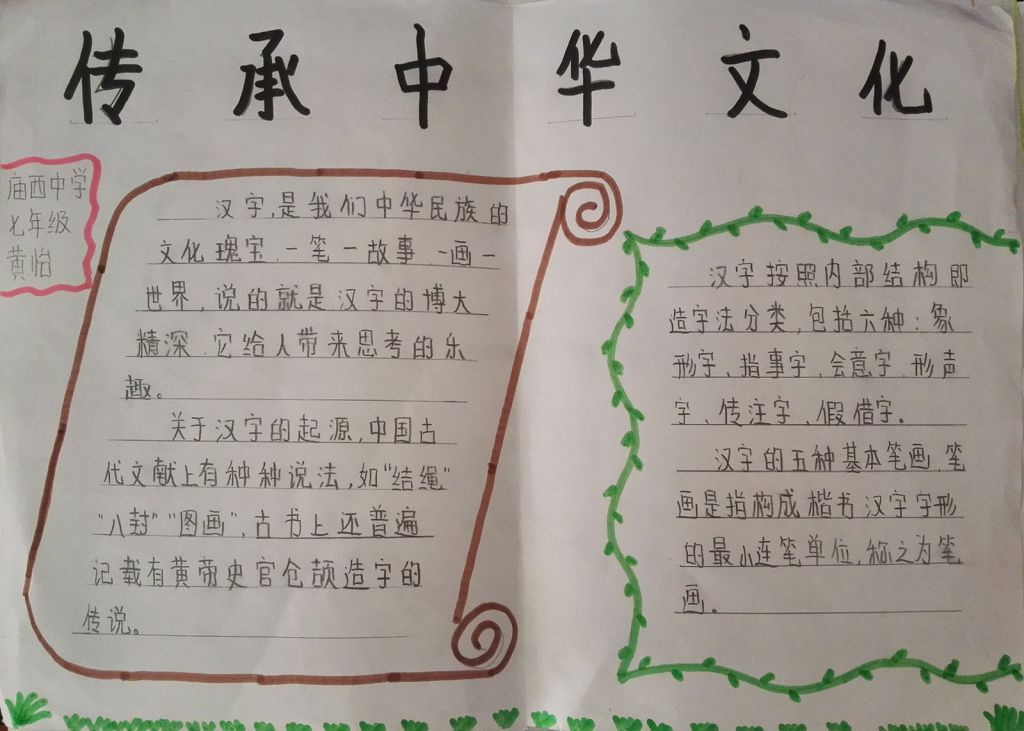 传承中华文化
庙西中学
七年级
黄怡
汉字,是我们中华民族的
文化瑰宝.一笔一故事.一画一
世界,说的就是汉字的博大
精深.它给人带来思考的乐
趣。
关于汉字的起源,中国古
代文献上有种种说法,如“结绳”
“八封”“图画”,古书上还普遍
记载有黄帝史官仓颉造字的
传说。
汉字按照内部结构即
造字法分类,包括六种:象
形字、指事字、会意字、形声
字、传注字、假借字。
汉字的五种基本笔画,笔
画是指构成楷书汉字字形
的最小连笔单位,称之为笔
画。